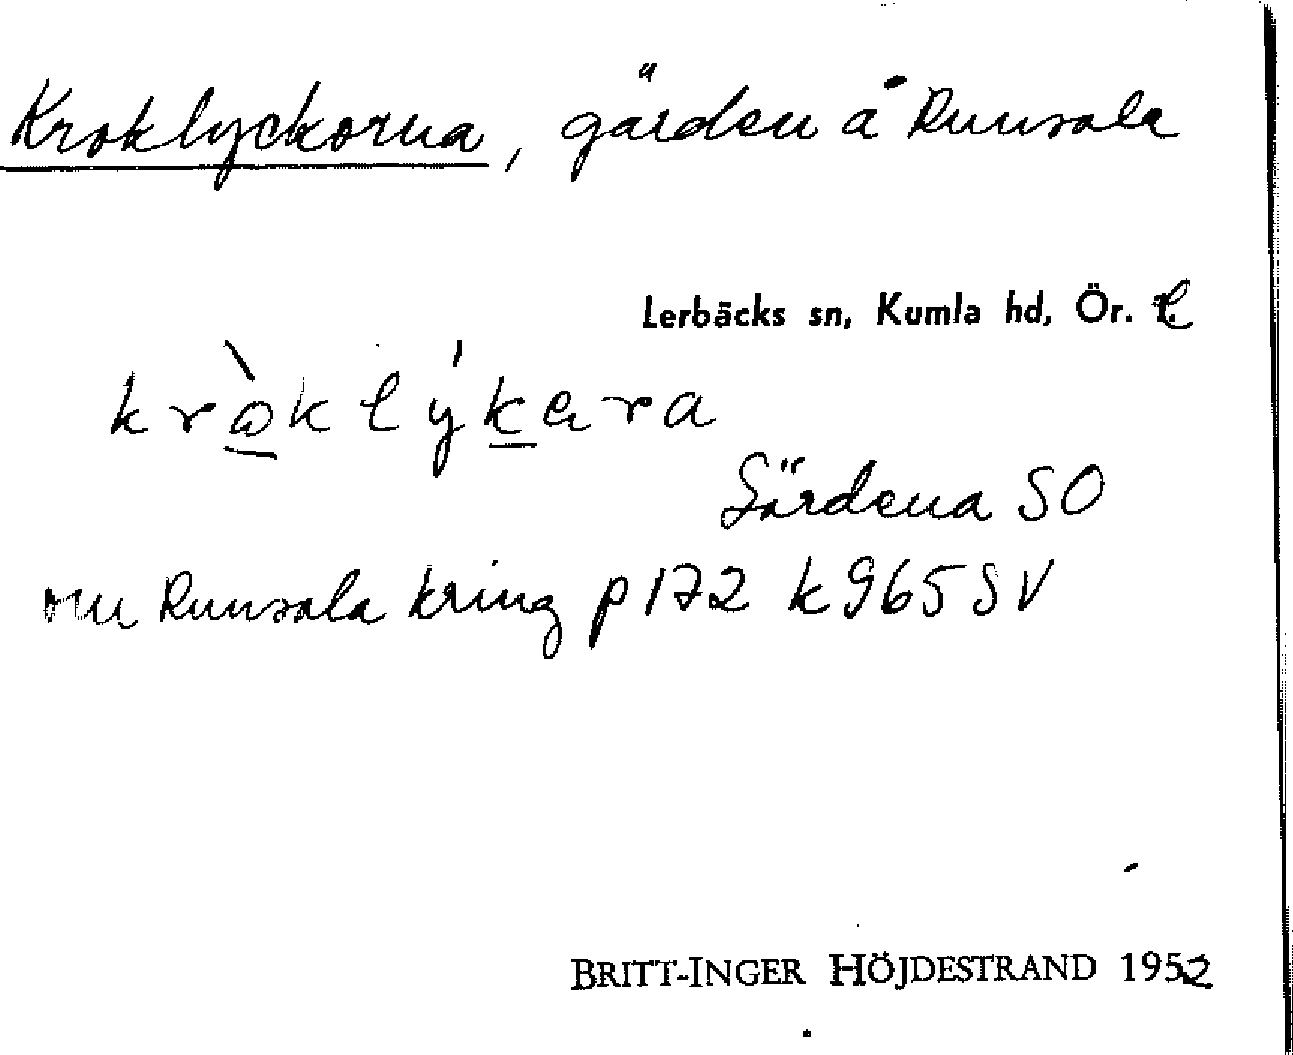 Kroklyckorna, gärden å Runsala
Lerbäcks sn, Kumla hd, Ör. l.
kròklýkara
Gärdena SO
om Runsala kring p172 k965SV
BRITT-INGER HÖJDESTRAND 1952